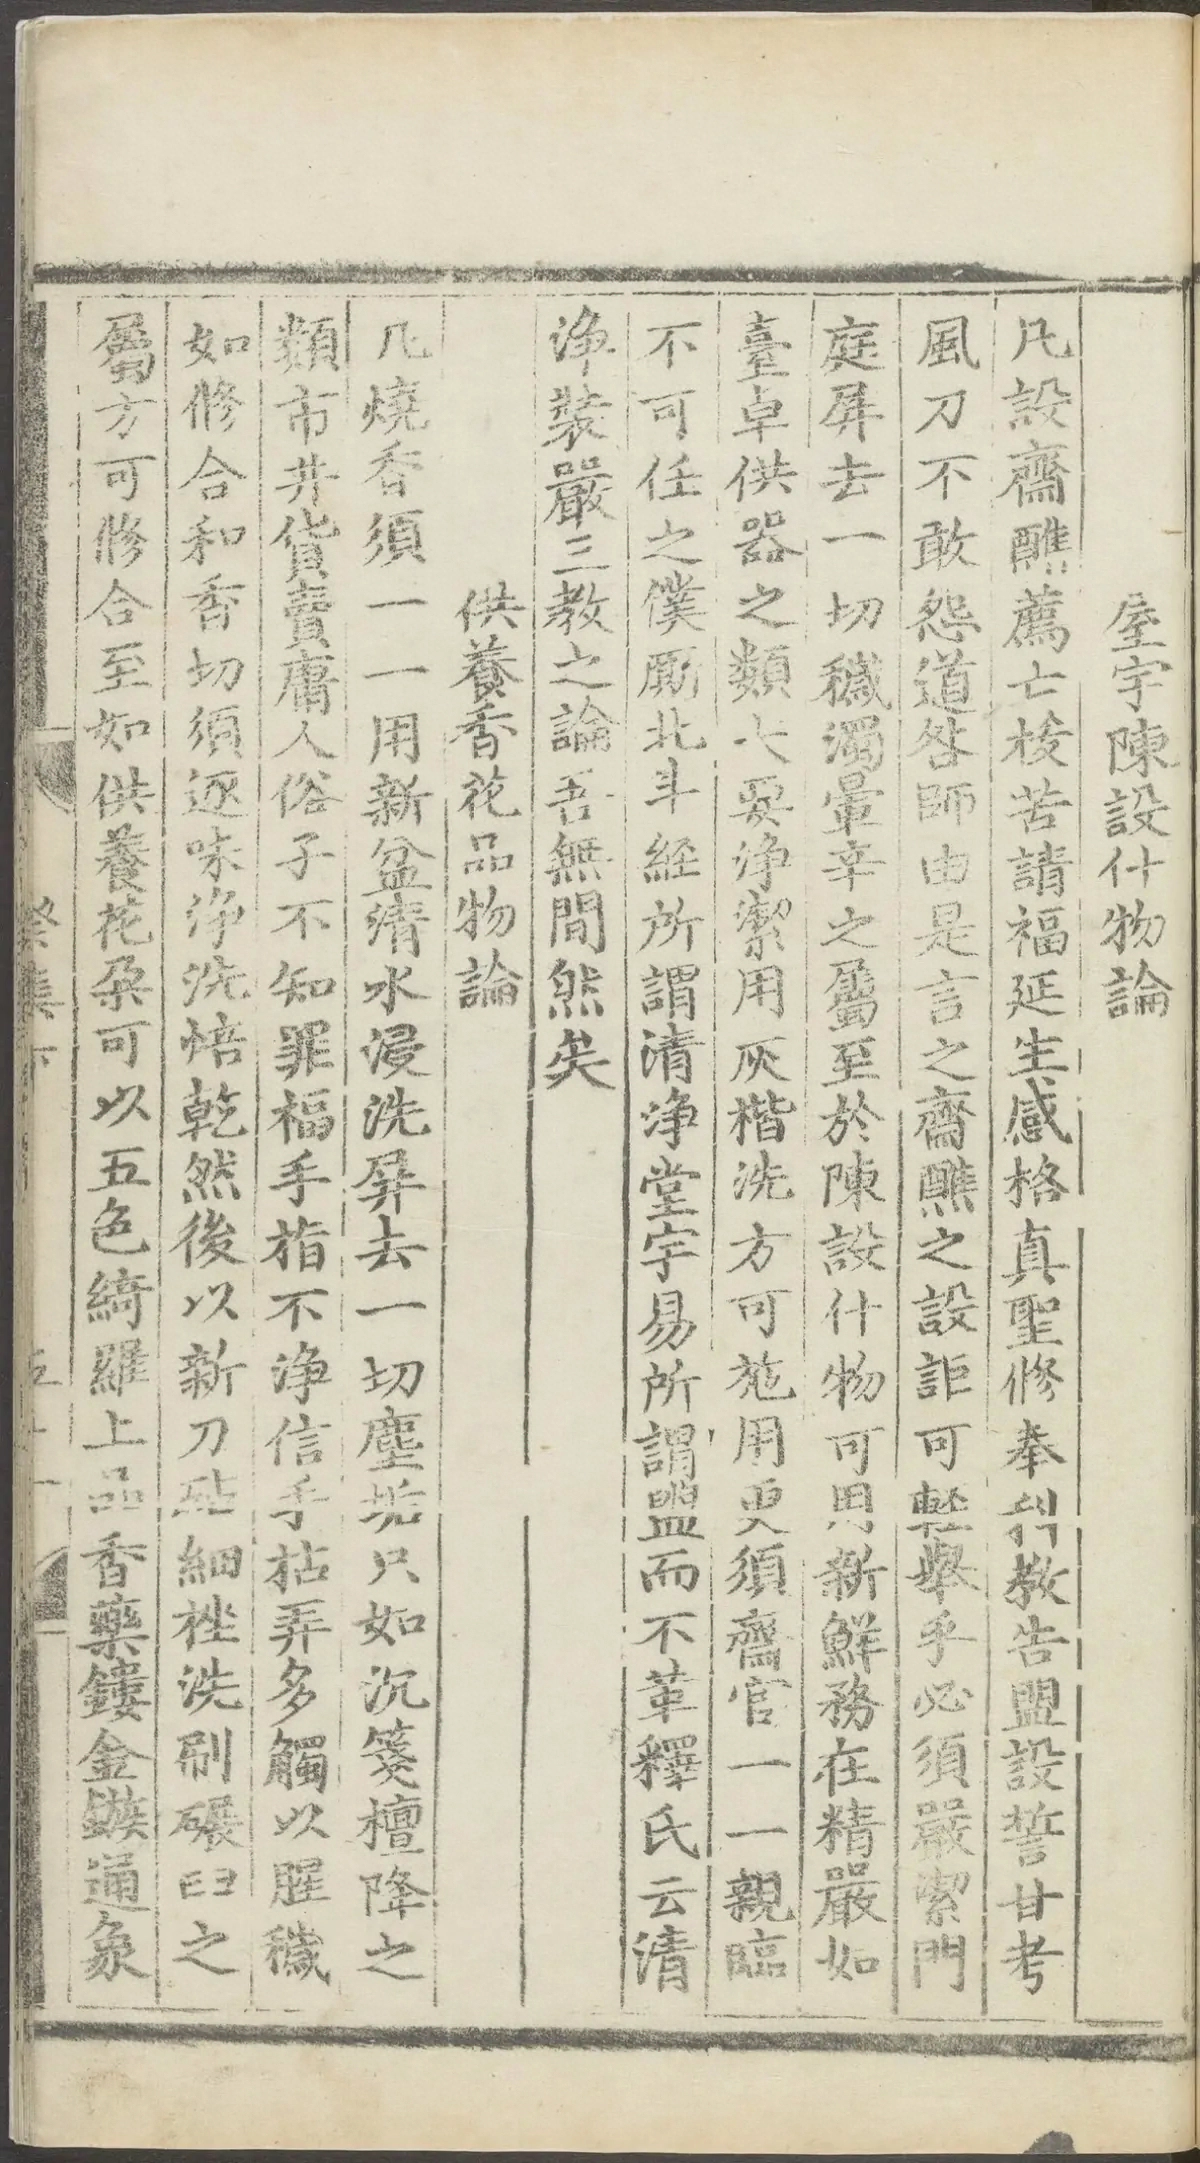 屋宇陳設什物論
凡設齋醮薦亡㧞苦請福延生感格真聖修奉科教告盟設誓甘考
風刀不敢怨道咎師由是言之齋醮之設詎可輕舉乎必須嚴潔門
庭屏去一切穢濁葷辛之屬至於陳設什物可用新鮮務在精嚴如
臺卓供器之類大要淨潔用灰楷洗方可施用更須齋官一一親臨
不可任之僕厮北斗經所謂清淨堂宇易所謂盟而不革釋氏云清
淨裝嚴三教之論吾無間然矣
供養香花品物論
凡燒香須一一用新盆清水浸洗屏去一切塵垢只如沉箋檀降之
類市井貨賣庸人俗子不知罪福手指不淨信手拈弄多觸以腥穢
如修合和香切須逐味淨洗焙乾然後以新刀砧細挫洗刷碾臼之
屬方可修合至如供養花朶可以五色綺羅上品香藥鏤金鏃通象